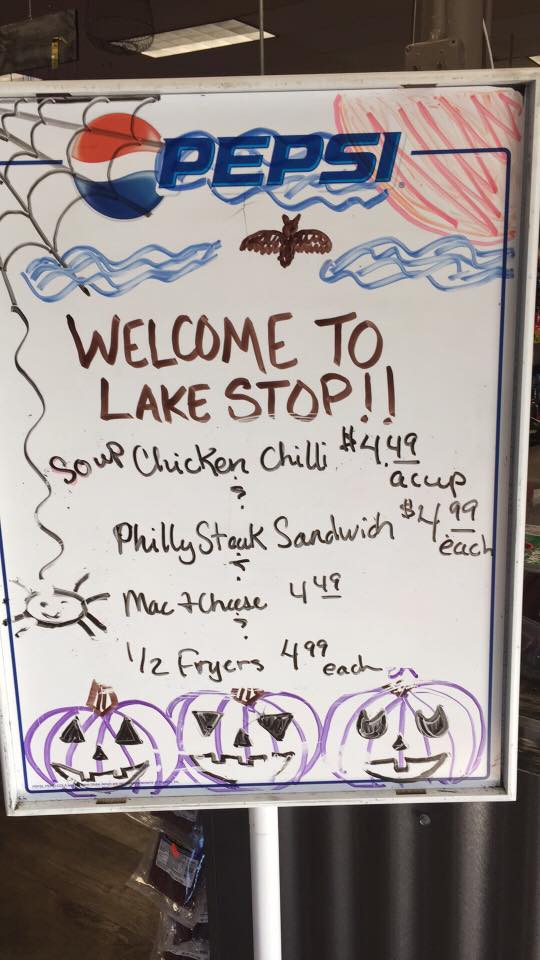 PEPSI
WELCOME TO
LAKE STOP!!
Soup Chicken Chilli $4.49
a cup
Philly Steak Sandwich $4.99
each
Mac & Cheese 4 49
1/2 Fryers 4 99 each